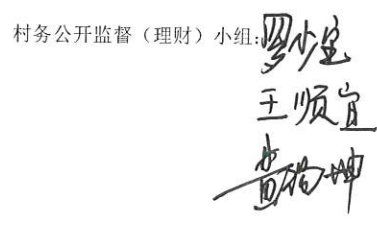 村务公开监督（理财）小组:罗少宝
王顺宜
坤